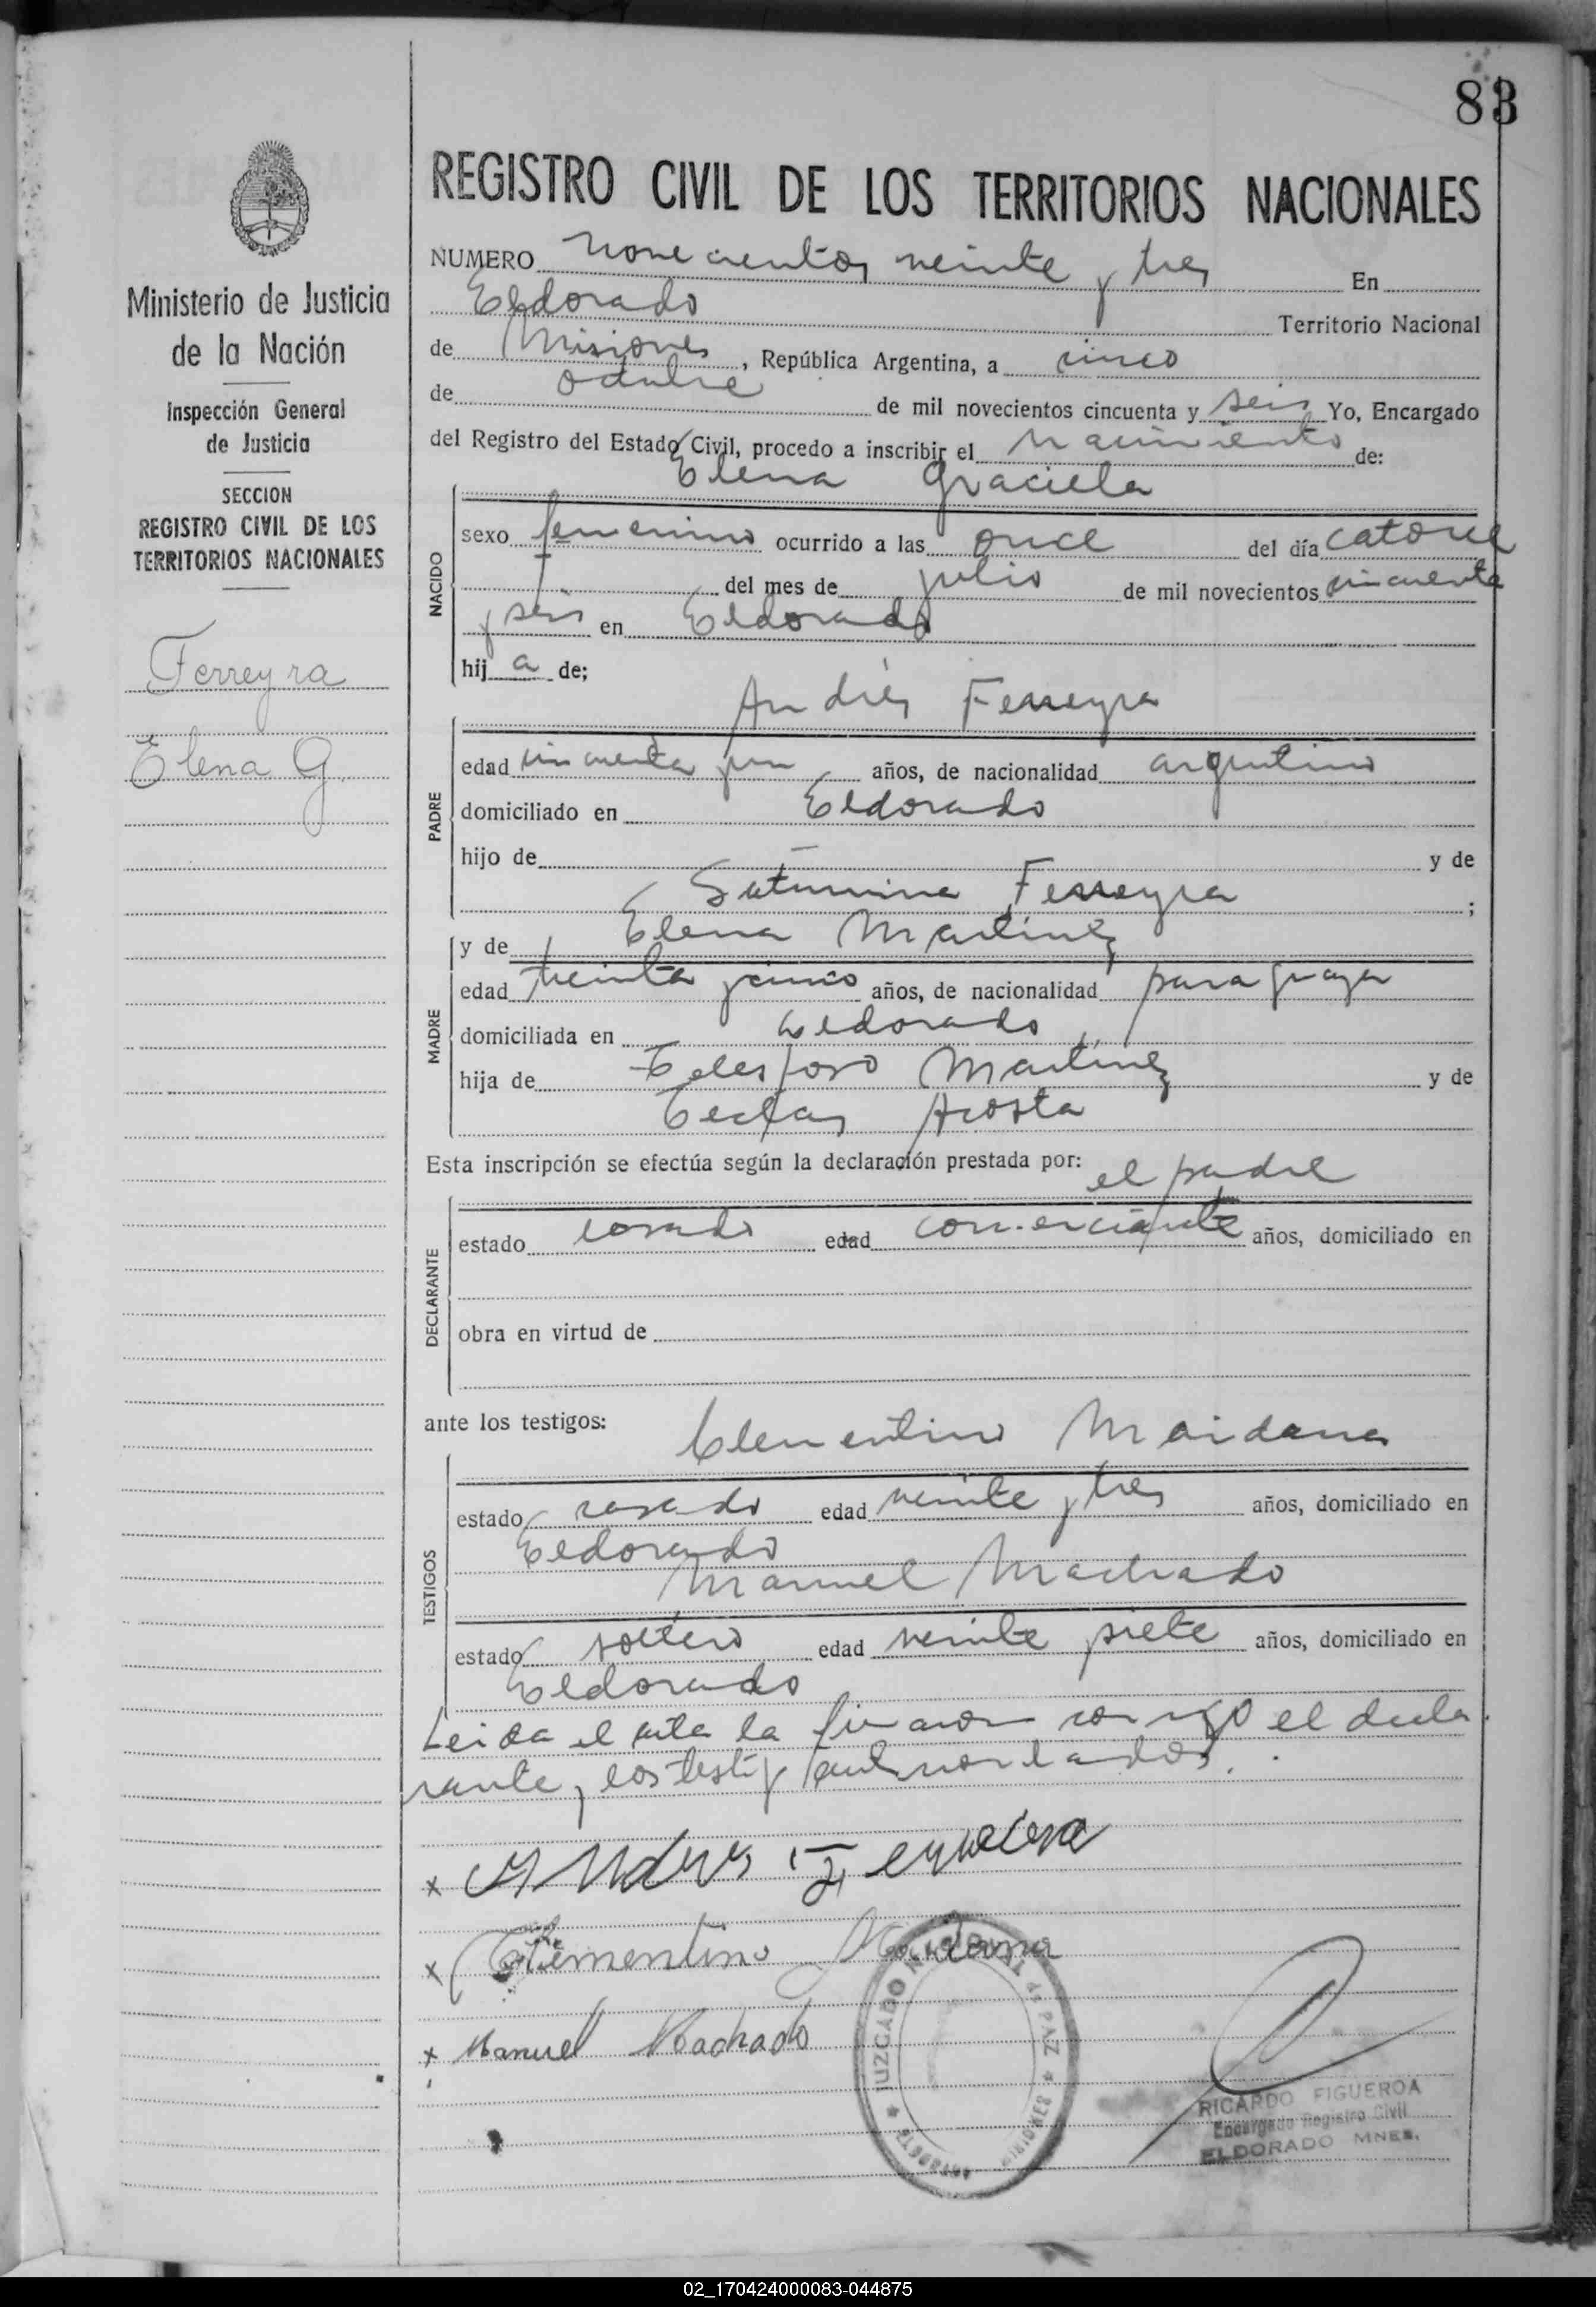 83
REGISTRO CIVIL DE LOS TERRITORIOS NACIONALES
NUMERO novecientos veinte y tres En
Eldorado Territorio Nacional
de Misiones, República Argentina, a cinco
de octubre de mil novecientos cincuenta y seis Yo, Encargado
del Registro del Estado Civil, procedo a inscribir el nacimiento de:
Elena Graciela
NACIDO
sexo femenino ocurrido a las once del día catorce
del mes de julio de mil novecientos cincuenta
y seis en Eldorado
hij a de;
Andrés Ferreyra
PADRE
edad cincuenta y un años, de nacionalidad argentino
domiciliado en Eldorado
hijo de — y de
Saturnina Ferreyra ;
y de Elena Martínez
MADRE
edad treinta y cinco años, de nacionalidad paraguaya
domiciliada en Eldorado
hija de Telesforo Martínez y de
Acosta
Esta inscripción se efectúa según la declaración prestada por: el padre
DECLARANTE
estado casado edad comerciante años, domiciliado en
obra en virtud de
ante los testigos: Clementino Maidana
TESTIGOS
estado casado edad veinte y tres años, domiciliado en
Eldorado
Manuel Machado
estado soltero edad veinte y siete años, domiciliado en
Eldorado
Leida el acta la firmaron conmigo el decla
rante y los testig
x Andres
x Clementino Maidana
x Manuel Machado
JUZGADO NACIONAL de PAZ * MISIONES * ELDORADO *
RICARDO FIGUEROA
Encargado Registro Civil
ELDORADO MNES.
Ministerio de Justicia
de la Nación
Inspección General
de Justicia
SECCION
REGISTRO CIVIL DE LOS
TERRITORIOS NACIONALES
Ferreyra
Elena G.
02_170424000083-044875